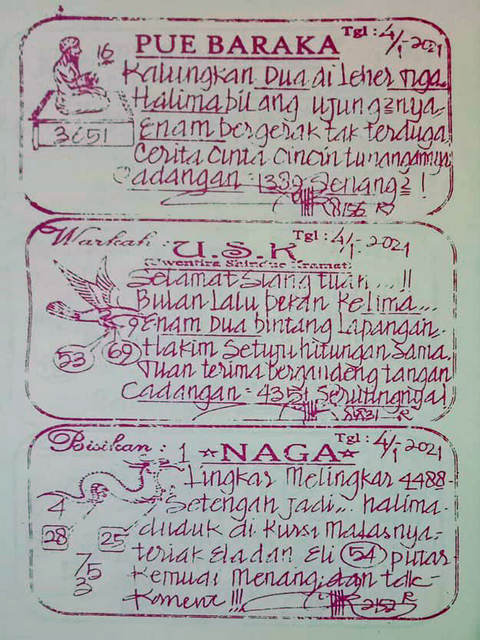 PUE BARAKA Tgl : 4/1-2021
16
Kalungkan Dua di Leher Tiga
Halima bilang ujung2nya
3651
Enam bergerak tak terduga
Cerita Cinta Cincin tunangannya
Cadangan = 1389 Senang2 !
8156 R
Warkah : U.S.K Tgl : 4/1-2021
Selamat Siang tuan ... !!
Bulan Lalu pekan Kelima...
9 Enam Dua bintang Lapangan.
53 69 Hakim Setuju hitungan Sama.
Tuan terima bergandeng tangan
Cadangan = 4351 Serunungnya!
Bisikan : 1 ☆NAGA☆ Tgl : 4/1-2021
Lingkar Melingkar 4488-
4 Setengah jadi... halima.
28 25 duduk di Kursi malasnya.
teriak eladan Eli 54 putar
75 Kemudi Menang, dan tak-
3 Koment !!! 2152 R